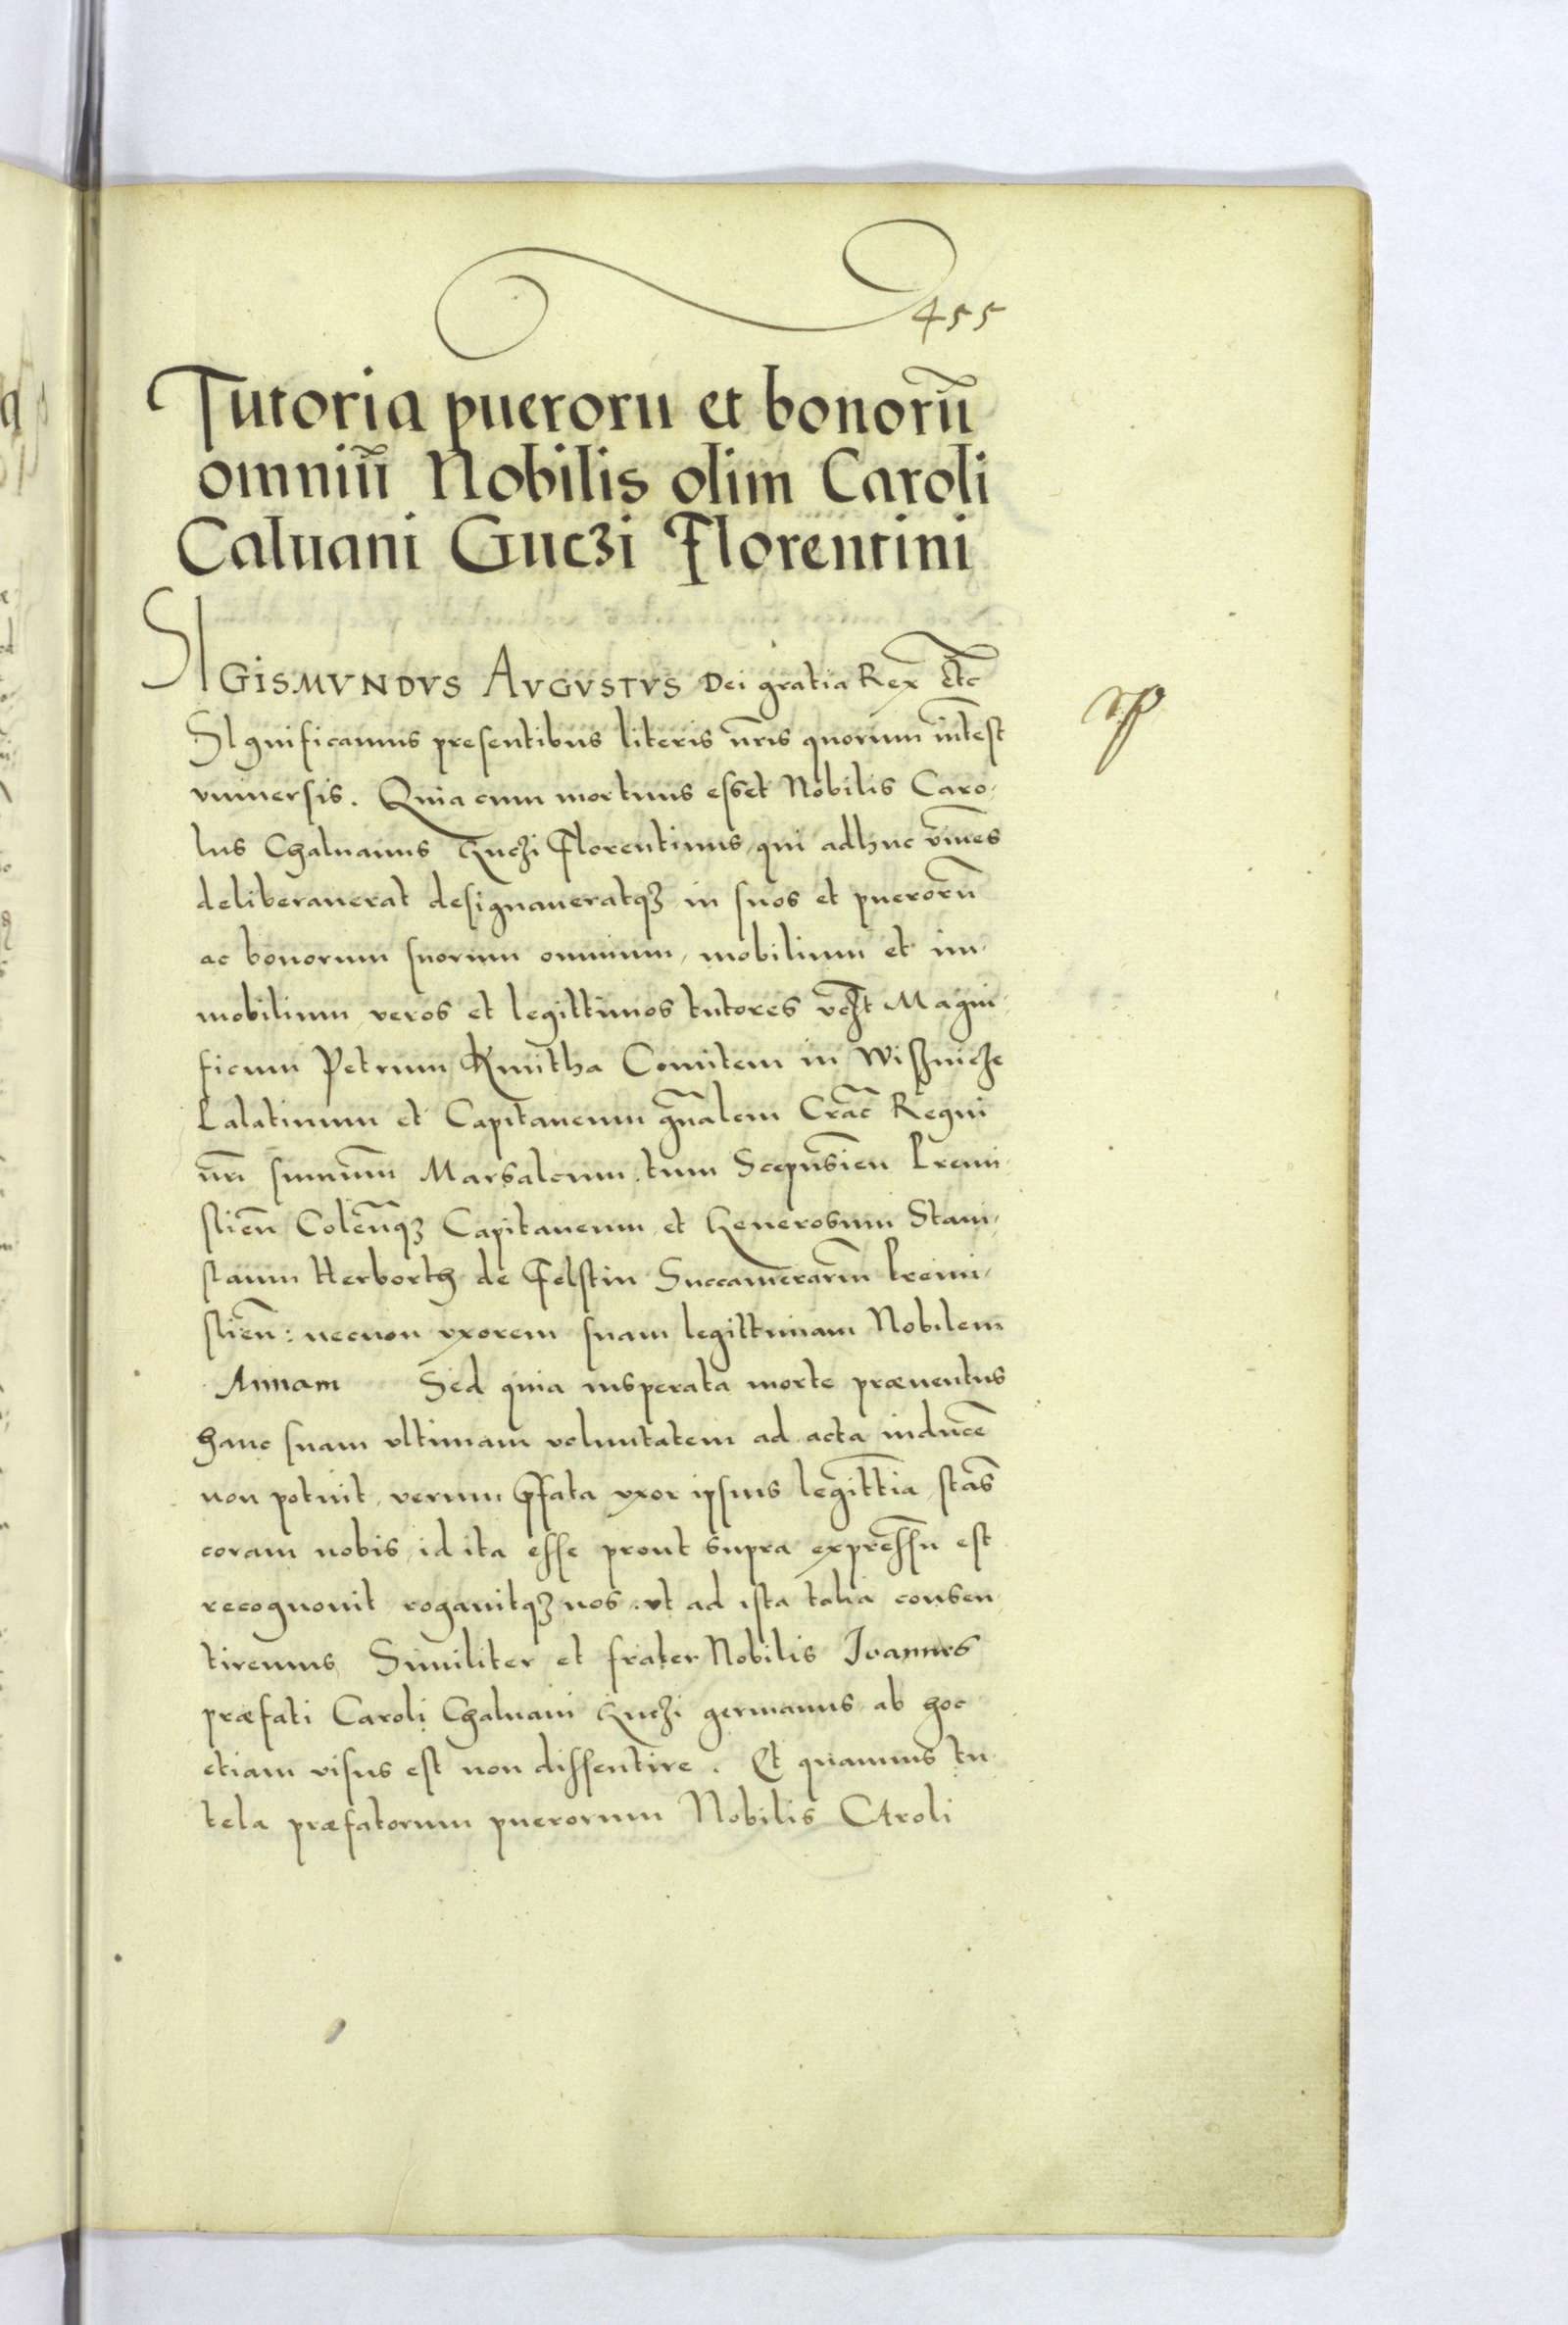 455
Tutoria pueroru et bonorū
omniū Nobilis olim Caroli
Caluani Guczi Florentini
SIGISMVNDVS AVGVSTVS Dei gratia Rex etc̄
SIgnificamus presentibus literis nr̄is quorum int̄est
vniuersis. Quia cum mortuus esset Nobilis Caro-
lus Chaluanus Guczi Florentinus, qui adhuc viuēs
deliberauerat designaueratqȝ in suos et puerorū
ac bonorum suorum omnium, mobilium et im-
mobilium veros et legittimos tutores vczt̄ Magni-
ficum Petrum Kmitha Comitem in Wisznicze
Palatinum et Capitaneum gn̄alem Crac̄ Regni
nr̄i summū Marsalcum. tum Scepusien̄ Premi-
slien̄ Colen̄qȝ Capitaneum, et Generosum Stani-
slaum Herborth de Felstin Succamerariū Premi-
slien̄: necnon vxorem suam legittimam Nobilem
Annam Sed quia insperata morte præuentus
hanc suam vltimam voluntatem ad acta inducē
non potuit, verum p̄fata vxor ipsius legittīa, stās
coram nobis, id ita esse prout supra expressū est
recognouit rogauitqȝ nos. vt ad ista talia consen-
tiremus, Similiter et frater Nobilis Joannes
præfati Caroli Chaluani Guczi germanus ab hoc
etiam visus est non dissentire. Et quamuis tu-
tela præfatorum puerorum Nobilis CAroli